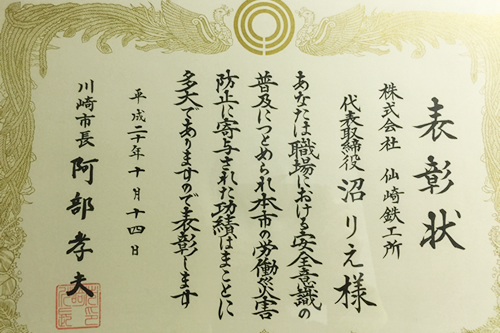 表彰状
株式会社 仙崎鉄工所
代表取締役 沼りえ様
あなたは職場における安全意識の
普及につとめられ本市の労働災害
防止に寄与された功績はまことに
多大でありますので表彰します
平成二十年十月十四日
川崎市長 阿部孝夫